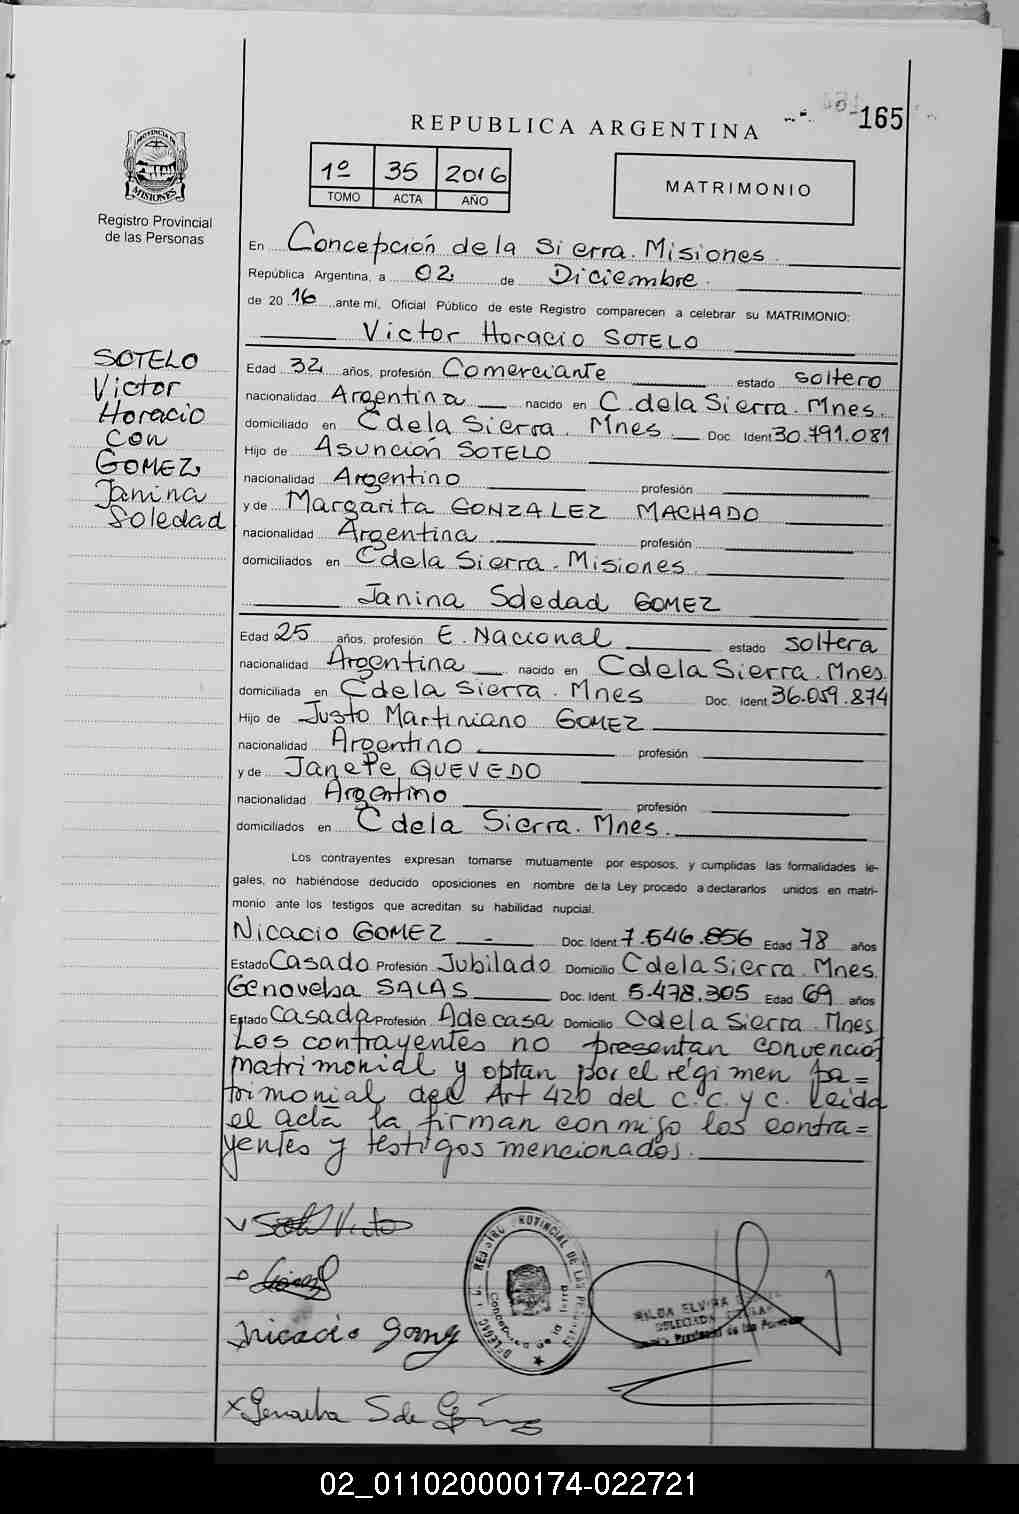 165
REPUBLICA ARGENTINA
1º 35 2016
TOMO ACTA AÑO
MATRIMONIO
PROVINCIA DE
MISIONES
Registro Provincial
de las Personas
En Concepción de la Sierra. Misiones.
República Argentina, a 02 de Diciembre.
de 20 16 ante mí, Oficial Público de este Registro comparecen a celebrar su MATRIMONIO:
Victor Horacio SOTELO
SOTELO
Victor
Horacio
con
GOMEZ
Janina
Soledad
Edad 32 años, profesión Comerciante estado soltero
nacionalidad Argentina nacido en C. de la Sierra. Mnes.
domiciliado en C de la Sierra. Mnes Doc. Ident 30.791.081
Hijo de Asunción SOTELO
nacionalidad Argentino profesión
y de Margarita GONZALEZ MACHADO
nacionalidad Argentina profesión
domiciliados en C de la Sierra. Misiones.
Janina Soledad GOMEZ
Edad 25 años, profesión E. Nacional estado soltera
nacionalidad Argentina nacido en C de la Sierra. Mnes.
domiciliada en C de la Sierra. Mnes Doc. Ident 36.059.874
Hijo de Justo Martiniano GOMEZ
nacionalidad Argentino profesión
y de Janete QUEVEDO
nacionalidad Argentino profesión
domiciliados en C de la Sierra. Mnes.
Los contrayentes expresan tomarse mutuamente por esposos, y cumplidas las formalidades le-
gales, no habiéndose deducido oposiciones en nombre de la Ley procedo a declararlos unidos en matri-
monio ante los testigos que acreditan su habilidad nupcial.
Nicacio GOMEZ Doc. Ident. 7.546.856 Edad 78 años
Estado Casado Profesión Jubilado Domicilio C de la Sierra. Mnes.
Genovelsa SALAS Doc. Ident. 5.478.305 Edad 69 años
Estado Casada Profesión A de casa Domicilio C de la Sierra. Mnes
Los contrayentes no presentan convención
matrimonial y optan por el régimen pa=
trimonial del Art 420 del C.C. y C. Leida
el acta la firman conmigo los contra=
yentes y testigos mencionados.
Nicacio Gomez
REGISTRO PROVINCIAL DE LAS PERSONAS
Concepción de la Sierra
DELEGADA
02_011020000174-022721